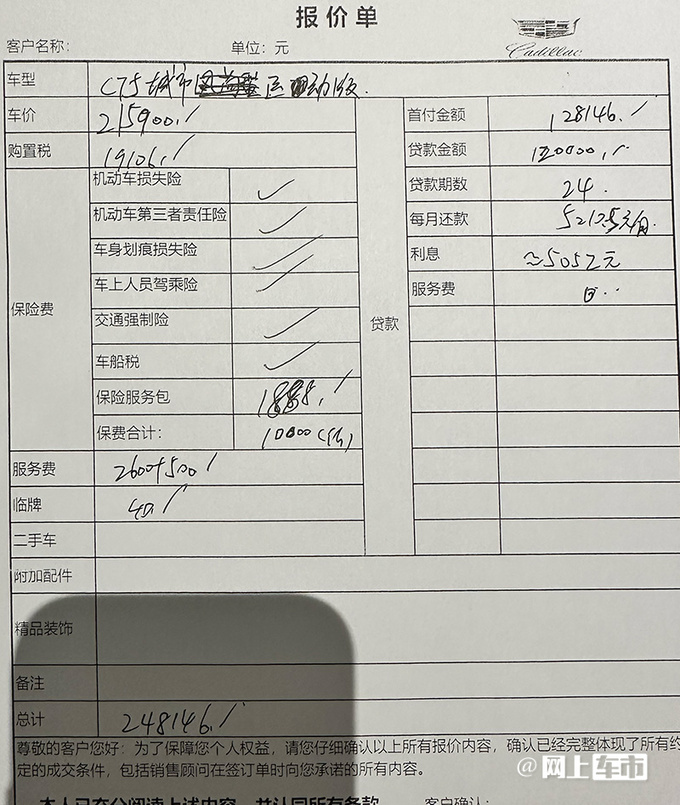 报价单
Cadillac
客户名称:
单位: 元
车型 CT5 城市 运动版
车价 215900.
购置税 19106.
保险费
机动车损失险 ✓
机动车第三者责任险 ✓
车身划痕损失险 ✓
车上人员驾乘险 ✓
交通强制险 ✓
车船税 ✓
保险服务包
保费合计: 10000
服务费 2600+500
临牌 40.
二手车
附加配件
精品装饰
备注
总计 248146.
贷款
首付金额 128146.
贷款金额 120000.
贷款期数 24.
每月还款
利息 ≈5052元
服务费
尊敬的客户您好: 为了保障您个人权益, 请您仔细确认以上所有报价内容, 确认已经完整体现了所有约
定的成交条件, 包括销售顾问在签订单时向您承诺的所有内容。
本人已充分阅读上述内容, 并认同所有条款
客户确认:
@网上车市